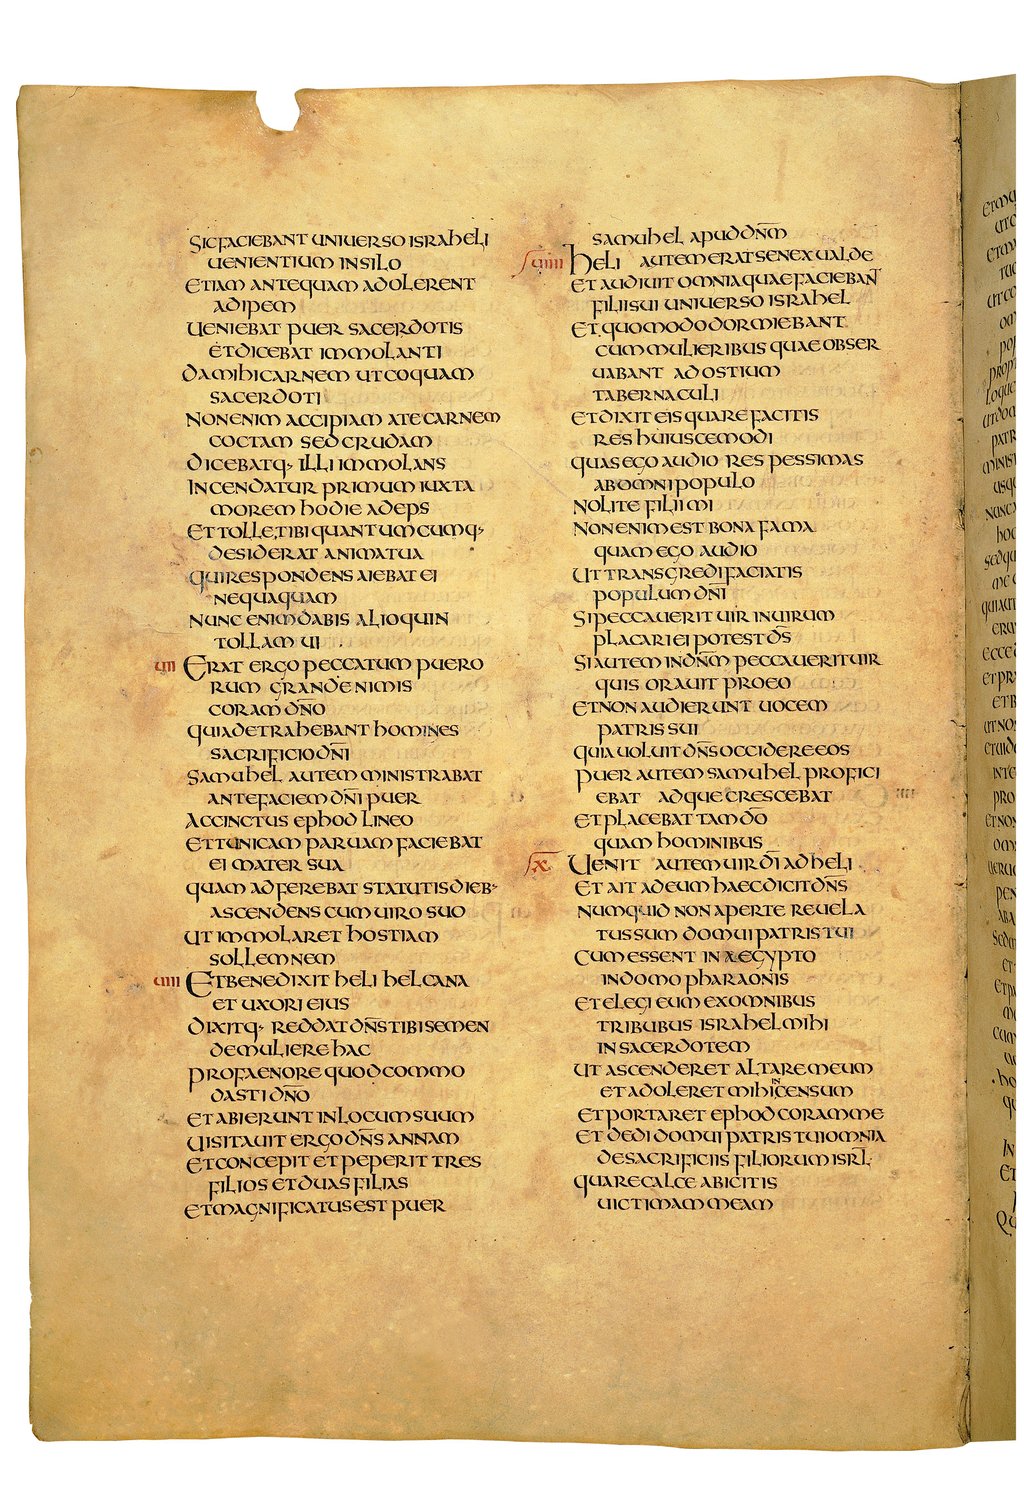 SIC FACIEBANT UNIUERSO ISRAHELI
UENIENTIUM IN SILO
ETIAM ANTEQUAM ADOLERENT
ADIPEM
UENIEBAT PUER SACERDOTIS
ET DICEBAT IMMOLANTI
DA MIHI CARNEM UT COQUAM
SACERDOTI
NON ENIM ACCIPIAM A TE CARNEM
COCTAM SED CRUDAM
DICEBATQ· ILLI IMMOLANS
INCENDATUR PRIMUM IUXTA
MOREM HODIE ADEPS
ET TOLLE TIBI QUANTUMCUMQ·
DESIDERAT ANIMA TUA
QUI RESPONDENS AIEBAT EI
NEQUAQUAM
NUNC ENIM DABIS ALIOQUIN
TOLLAM UI
UII ERAT ERGO PECCATUM PUERO
RUM GRANDE NIMIS
CORAM DÑO
QUIA DETRAHEBANT HOMINES
SACRIFICIO DÑI
SAMUHEL AUTEM MINISTRABAT
ANTE FACIEM DÑI PUER
ACCINCTUS EPHOD LINEO
ET TUNICAM PARUAM FACIEBAT
EI MATER SUA
QUAM ADFEREBAT STATUTIS DIEB·
ASCENDENS CUM UIRO SUO
UT IMMOLARET HOSTIAM
SOLLEMNEM
UIII ET BENEDIXIT HELI HELCANA
ET UXORI EIUS
DIXITQ· REDDAT DÑS TIBI SEMEN
DE MULIERE HAC
PRO FAENORE QUOD COMMO
DASTI DÑO
ET ABIERUNT IN LOCUM SUUM
UISITAUIT ERGO DÑS ANNAM
ET CONCEPIT ET PEPERIT TRES
FILIOS ET DUAS FILIAS
ET MAGNIFICATUS EST PUER
SAMUHEL APUD DÑM
UIIII HELI AUTEM ERAT SENEX UALDE
ET AUDIUIT OMNIA QUAE FACIEBAÑ
FILII SUI UNIUERSO ISRAHEL
ET QUOMODO DORMIEBANT
CUM MULIERIBUS QUAE OBSER
UABANT AD OSTIUM
TABERNACULI
ET DIXIT EIS QUARE FACITIS
RES HUIUSCEMODI
QUAS EGO AUDIO RES PESSIMAS
AB OMNI POPULO
NOLITE FILII MI
NON ENIM EST BONA FAMA
QUAM EGO AUDIO
UT TRANSGREDI FACIATIS
POPULUM DÑI
SI PECCAUERIT UIR IN UIRUM
PLACARI EI POTEST D̄S
SI AUTEM IN DÑM PECCAUERIT UIR
QUIS ORAUIT PRO EO
ET NON AUDIERUNT UOCEM
PATRIS SUI
QUIA UOLUIT DÑS OCCIDERE EOS
PUER AUTEM SAMUHEL PROFICI
EBAT ADQUE CRESCEBAT
ET PLACEBAT TAM D̄O
QUAM HOMINIBUS
X UENIT AUTEM UIR D̄I AD HELI
ET AIT AD EUM HAEC DICIT DÑS
NUMQUID NON APERTE REUELA
TUS SUM DOMUI PATRIS TUI
CUM ESSENT IN AEGYPTO
IN DOMO PHARAONIS
ET ELEGI EUM EX OMNIBUS
TRIBUBUS ISRAHEL MIHI
IN SACERDOTEM
UT ASCENDERET ALTARE MEUM
ET ADOLERET MIHI INCENSUM
ET PORTARET EPHOD CORAM ME
ET DEDI DOMUI PATRIS TUI OMNIA
DE SACRIFICIIS FILIORUM ISR̄L
QUARE CALCE ABICITIS
UICTIMAM MEAM